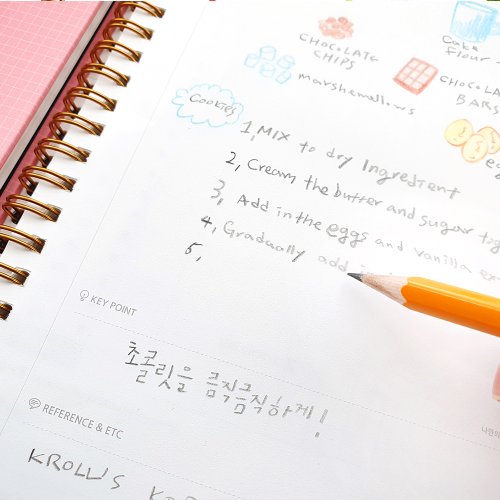 CHOCOLATE
CHIPS
Cake
Flour
marshemallows
CHOCOLA
BARS
Cookies
1, Mix to dry Ingredient
2, Cream the butter and sugar tog
3, Add in the eggs and vanilla ex
4, Gradually add
5,
KEY POINT
초콜릿을 큼직큼직하게!
REFERENCE & ETC
KROLL'S